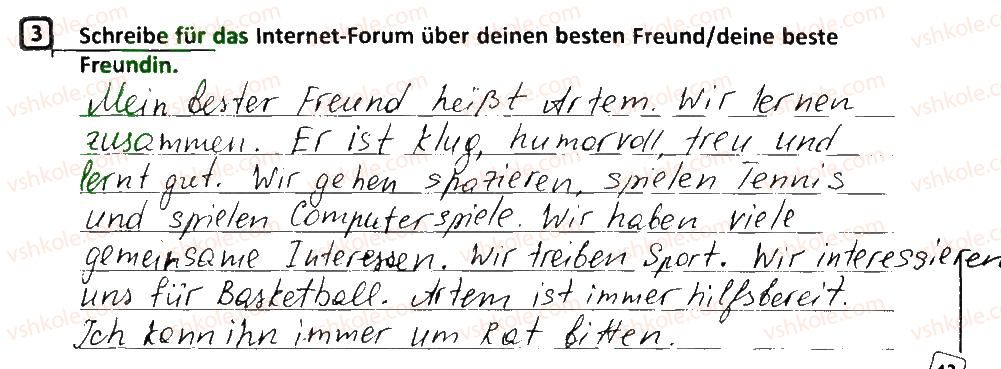 3 Schreibe für das Internet-Forum über deinen besten Freund/deine beste
Freundin.
Mein bester Freund heißt Artem. Wir lernen
zusammen. Er ist klug, humorvoll, treu und
lernt gut. Wir gehen spazieren, spielen Tennis
und spielen Computerspiele. Wir haben viele
gemeinsame Interessen. Wir treiben Sport. Wir interessieren
uns für Basketball. Artem ist immer hilfsbereit.
Ich kann ihn immer um Rat bitten.
vshkole.com